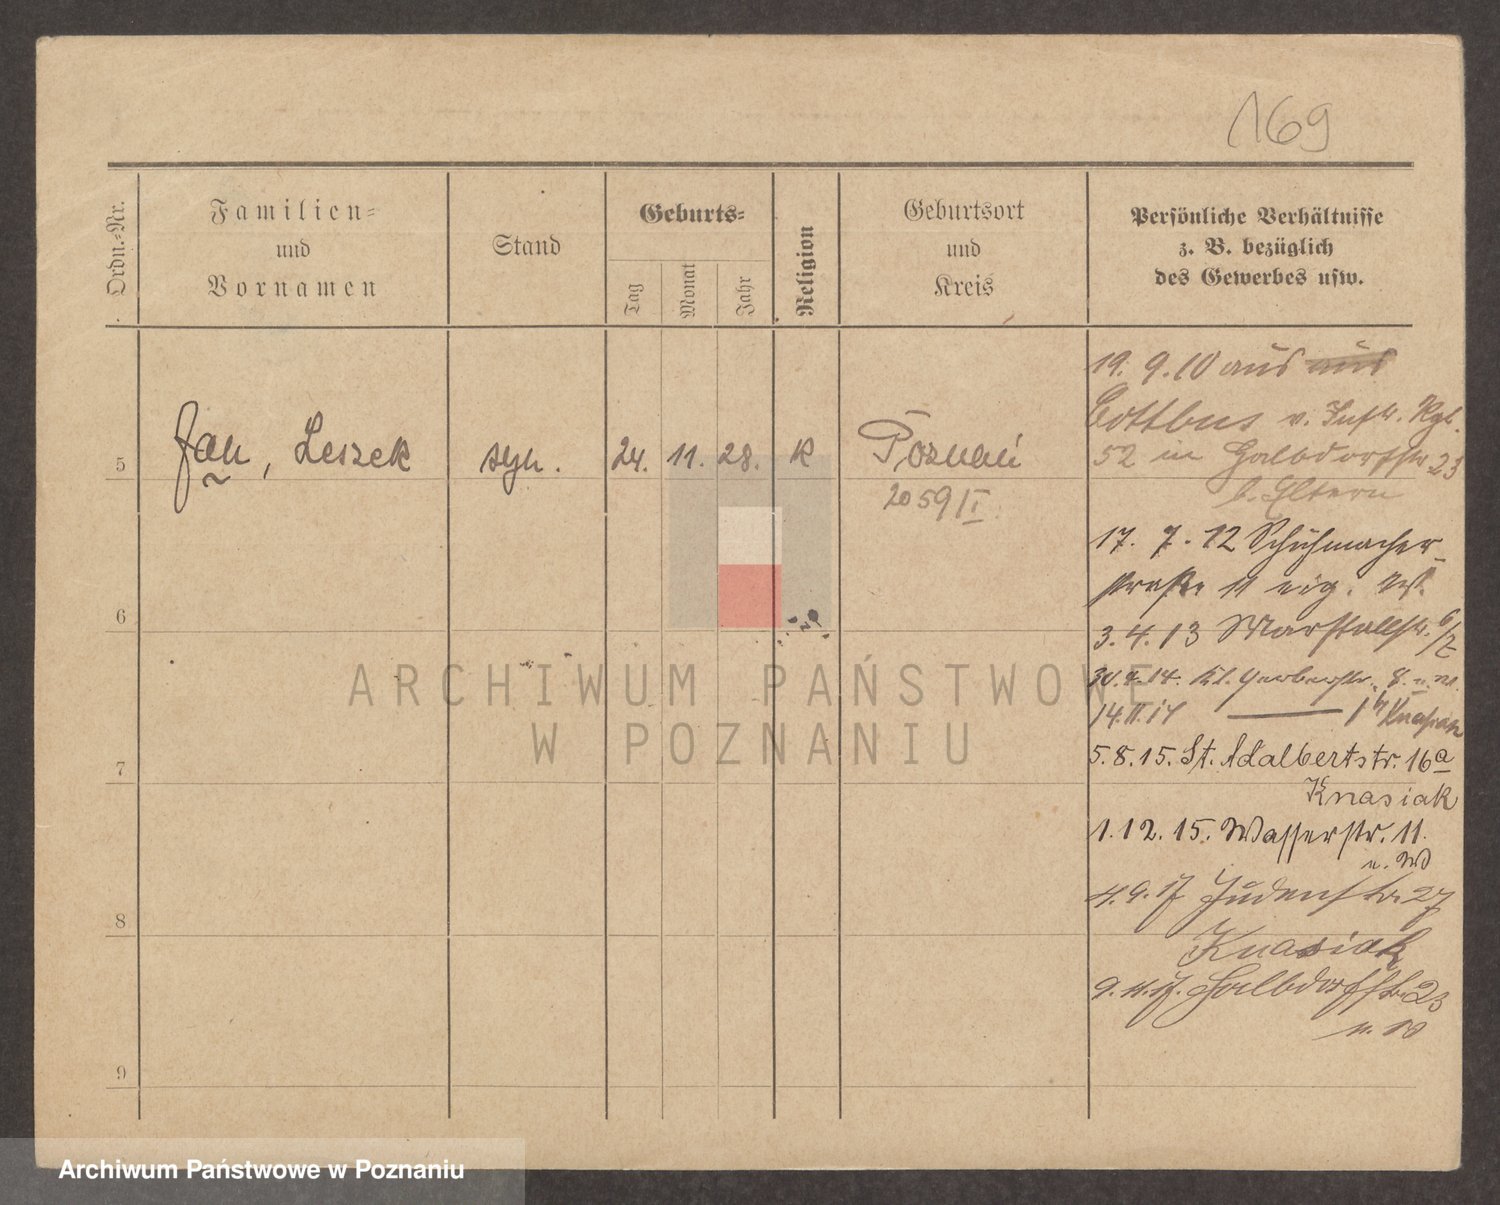 169
Ordn.-Nr.
Familien-
und
Vornamen
Stand
Geburts-
Tag
Monat
Jahr
Religion
Geburtsort
und
Kreis
Persönliche Verhältnisse
z. B. bezüglich
des Gewerbes usw.
5
Jan, Leszek
syn.
24.
11.
28.
K
Poznań
2059/I
6
7
8
9
19. 9. 10 aus aus
Cottbus v. Inftr. Rgt.
52 in Halbdorfstr 23
b. Eltern
17. 7. 12 Schuhmacher-
straße 11 eig. W.
3. 4. 13 Marstallstr.
30. 4. 14. Kl. Gerberstr. 8.
14. 11. 14 Knasiak
5. 8. 15. St. Adalbertstr. 16a
Knasiak
1. 12. 15. Wasserstr. 11.
u. W
4. 9. 17 Judenstr. 27
Knasiak
9. 11. 17. Halbdorfstr. 23
u. W
ARCHIWUM PAŃSTWOWE
W POZNANIU
Archiwum Państwowe w Poznaniu